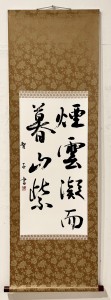 煙雲凝而
暮山紫